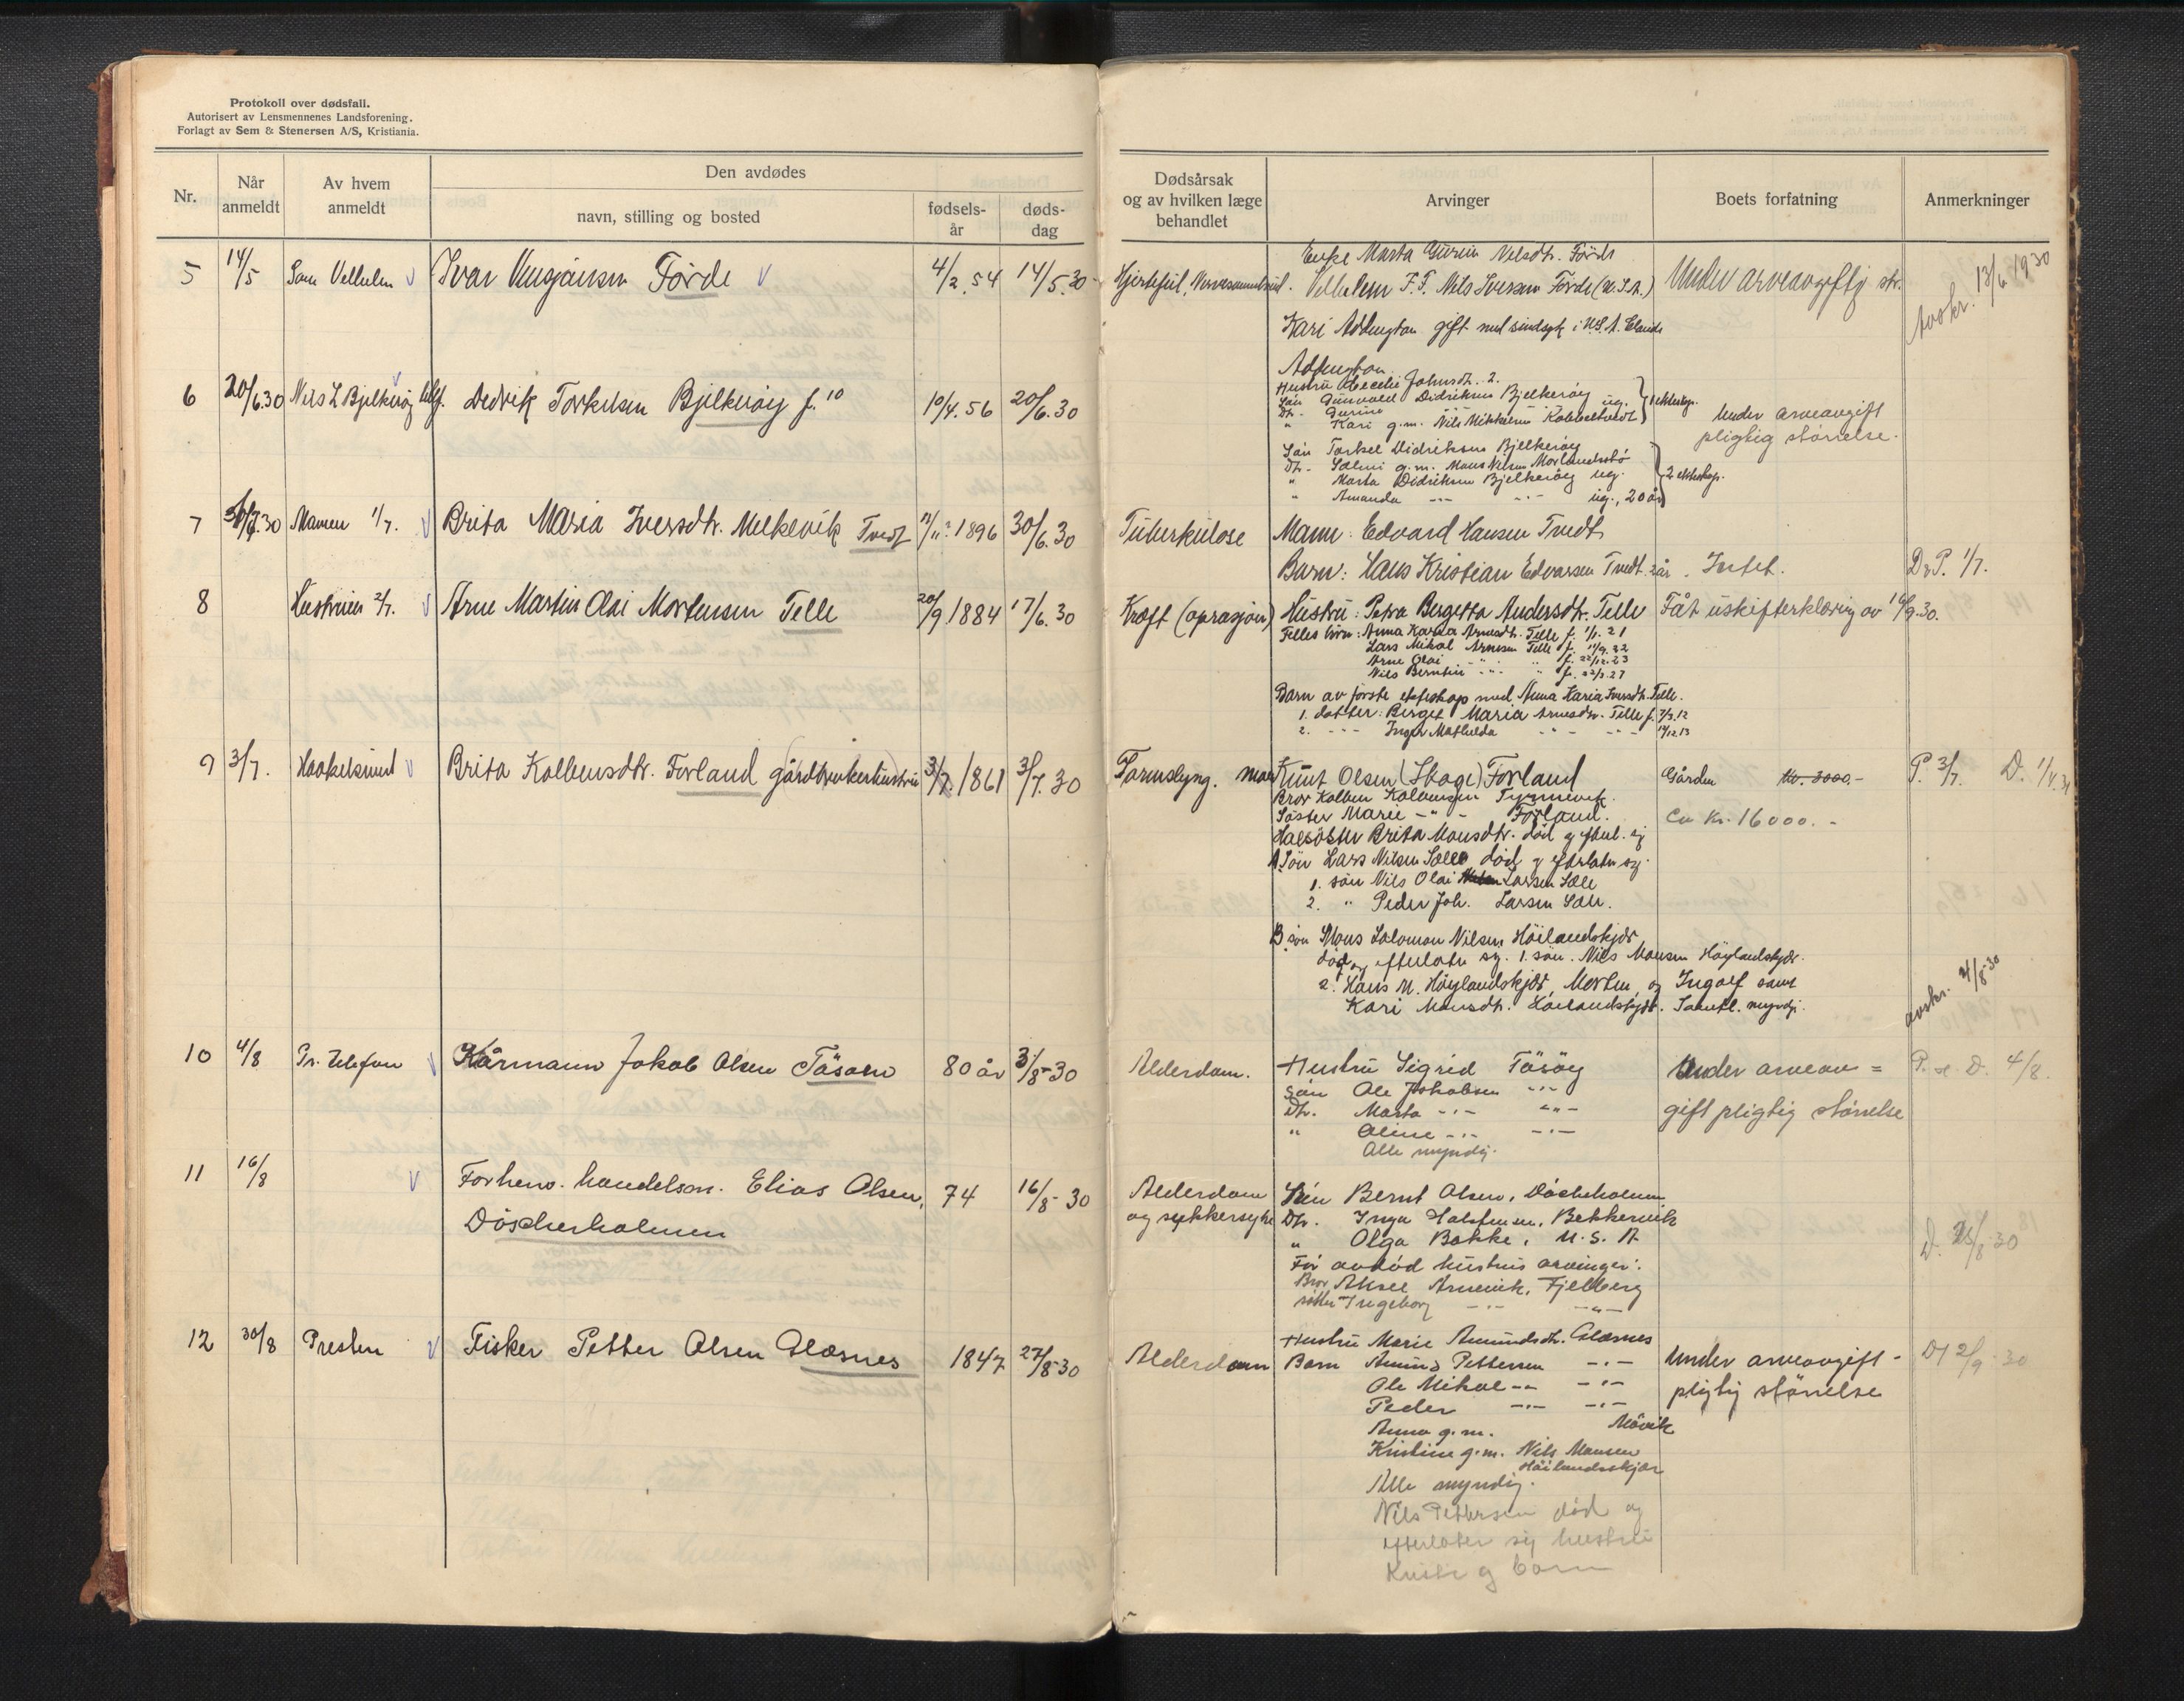 Protokoll over dødsfall.
Autorisert av Lensmennenes Landsforening.
Forlagt av Sem & Stenersen A/S, Kristiania.
Nr.
Når anmeldt
Av hvem anmeldt
Den avdødes
navn, stilling og bosted
fødsels-år
døds-dag
Dødsårsak og av hvilken læge behandlet
Arvinger
Boets forfatning
Anmerkninger
5 14/5 Ivar Førde 4/2.54 14/5.30 Hjertefeil
Enke Marta Gurine Nilsdtr. Førde
Vilhelm F.F. Nils Iversen Førde (U.S.A.)
Kari Addington gift med i U.S.A.
Addington
Under arveavgiftg str.
Avskr. 13/6 1930
6 20/6.30 Nils L Bjelkerøy Dedrik Torkelsen Bjelkerøy f. 10 10/4.56 20/6.30
Hustru Johnsdt. 2.
Søn Gunvald Didriksen Bjelkerøy ug.
Dtr. Gurine
" Kari g.m. Nils Mikkelsen Kobbeltvedt
1 ekteskp.
Søn Torkel Didriksen Bjelkerøy
Dtr. Salmi g.m. Mons Nilsen Morlandsstø
" Marta Didriksen Bjelkerøy ug.
" Amanda -"- -"- ug., 20 år
2 ekteskap.
Under arveavgift
pligtig størrelse.
7 Mannen 1/7. Brita Maria Iversdtr. Milkevik Tvedt 1896 30/6.30 Tuberkulose
Mann: Edvard Hansen Tvedt
Barn: Hans Kristian Edvarsen Tvedt 2 år. Intet. D&P. 1/7.
8 Hustruen 2/7. Arne Martin Olai Mortensen Telle 20/9 1884 17/6.30 Kræft (oprasjon)
Hustru: Petra Bergetta Andersdtr. Telle
Felles barn: Anna Karia Arnesdtr. Telle f. 1/1.21
Lars Mikal Arnesen Telle f. 11/9.22
Arne Olai -"- " f. 22/12.23
Nils Berntin -"- " f. 22/3.27
Barn av første ekteskap med Anna Karia Iversdtr. Telle.
1. datter: Berget Maria Arnesdtr. Telle f. 7/3.12
2. -"- Inger Mathilda -"- -"- 14/12.13
Fåt uskifterklæring av 16/9.30.
9 3/7. Haakelsund Brita Kolbensdtr. Forland gårdbrukerhustru 3/7. 1861 3/7.30 Tarmslyng.
man Knut Olsen (Skage) Forland
Bror Kolben Kolbensen
Søster Marie -"- Forland.
Halsøster Brita Monsdtr. død
A Søn Lars Nilsen Sæle død og efterlater sig.
1. søn Nils Olai Larsen Sæle
2. " Peder Joh. Larsen Sæle.
B søn Mons Salomon Nilsen Høilandskjær
død og efterlater sg. 1. søn. Nils Monsen Høylandskjær.
2. Hans M. Høylandskjær, Morten, og Ingolf samt
Kari Monsdtr. Høilandskjær. Samtl. myndg.
Gården kr. 3000.-
Ca kr. 16000.-
P. 3/7. D. 1/4.31
avskr. 4/8-30
10 4/8 Pr. telefon Kårmann Jakob Olsen Tåsøen 80 år 3/8-30 Alderdom.
Hustru Sigrid Tåsøy
Søn Ole Jakobsen -"-
Dtr. Marta -"- -"-
" Oline -"- -"-
Alle myndig.
Under arveav=
gift pligtig størrelse
P. & D. 4/8.
11 16/8 Forhenv. handelsm. Elias Olsen, 74 16/8-30
Døscherholmen
Alderdom
og sukkersyke
Søn Bernt Olsen, Døscherholmen
Dtr. Inga Halstensen, Bekkervik
" Olga Bakke, U.S.A
Før avdød hustrus arvinger:
Bror Aksel Arnevik, Fjelberg
søster Ingeborg -"- -"-
D. 18/8-30
12 30/8 Presten Fisker Petter Olsen Glæsnes 1847 27/8-30 Alderdom
Hustru Marie Amundsdtr. Glæsnes
Barn Amund Pettersen -"-
Ole Mikal -"- -"-
Peder -"- -"-
Anna g.m. Møvik
Kristine g.m. Nils Monsen
Høilandsskjær
Alle myndig.
Nils Pettersen død og
efterlater sig hustru
og barn
Under arveavgift-
pligtig størrelse
D 2/9-30